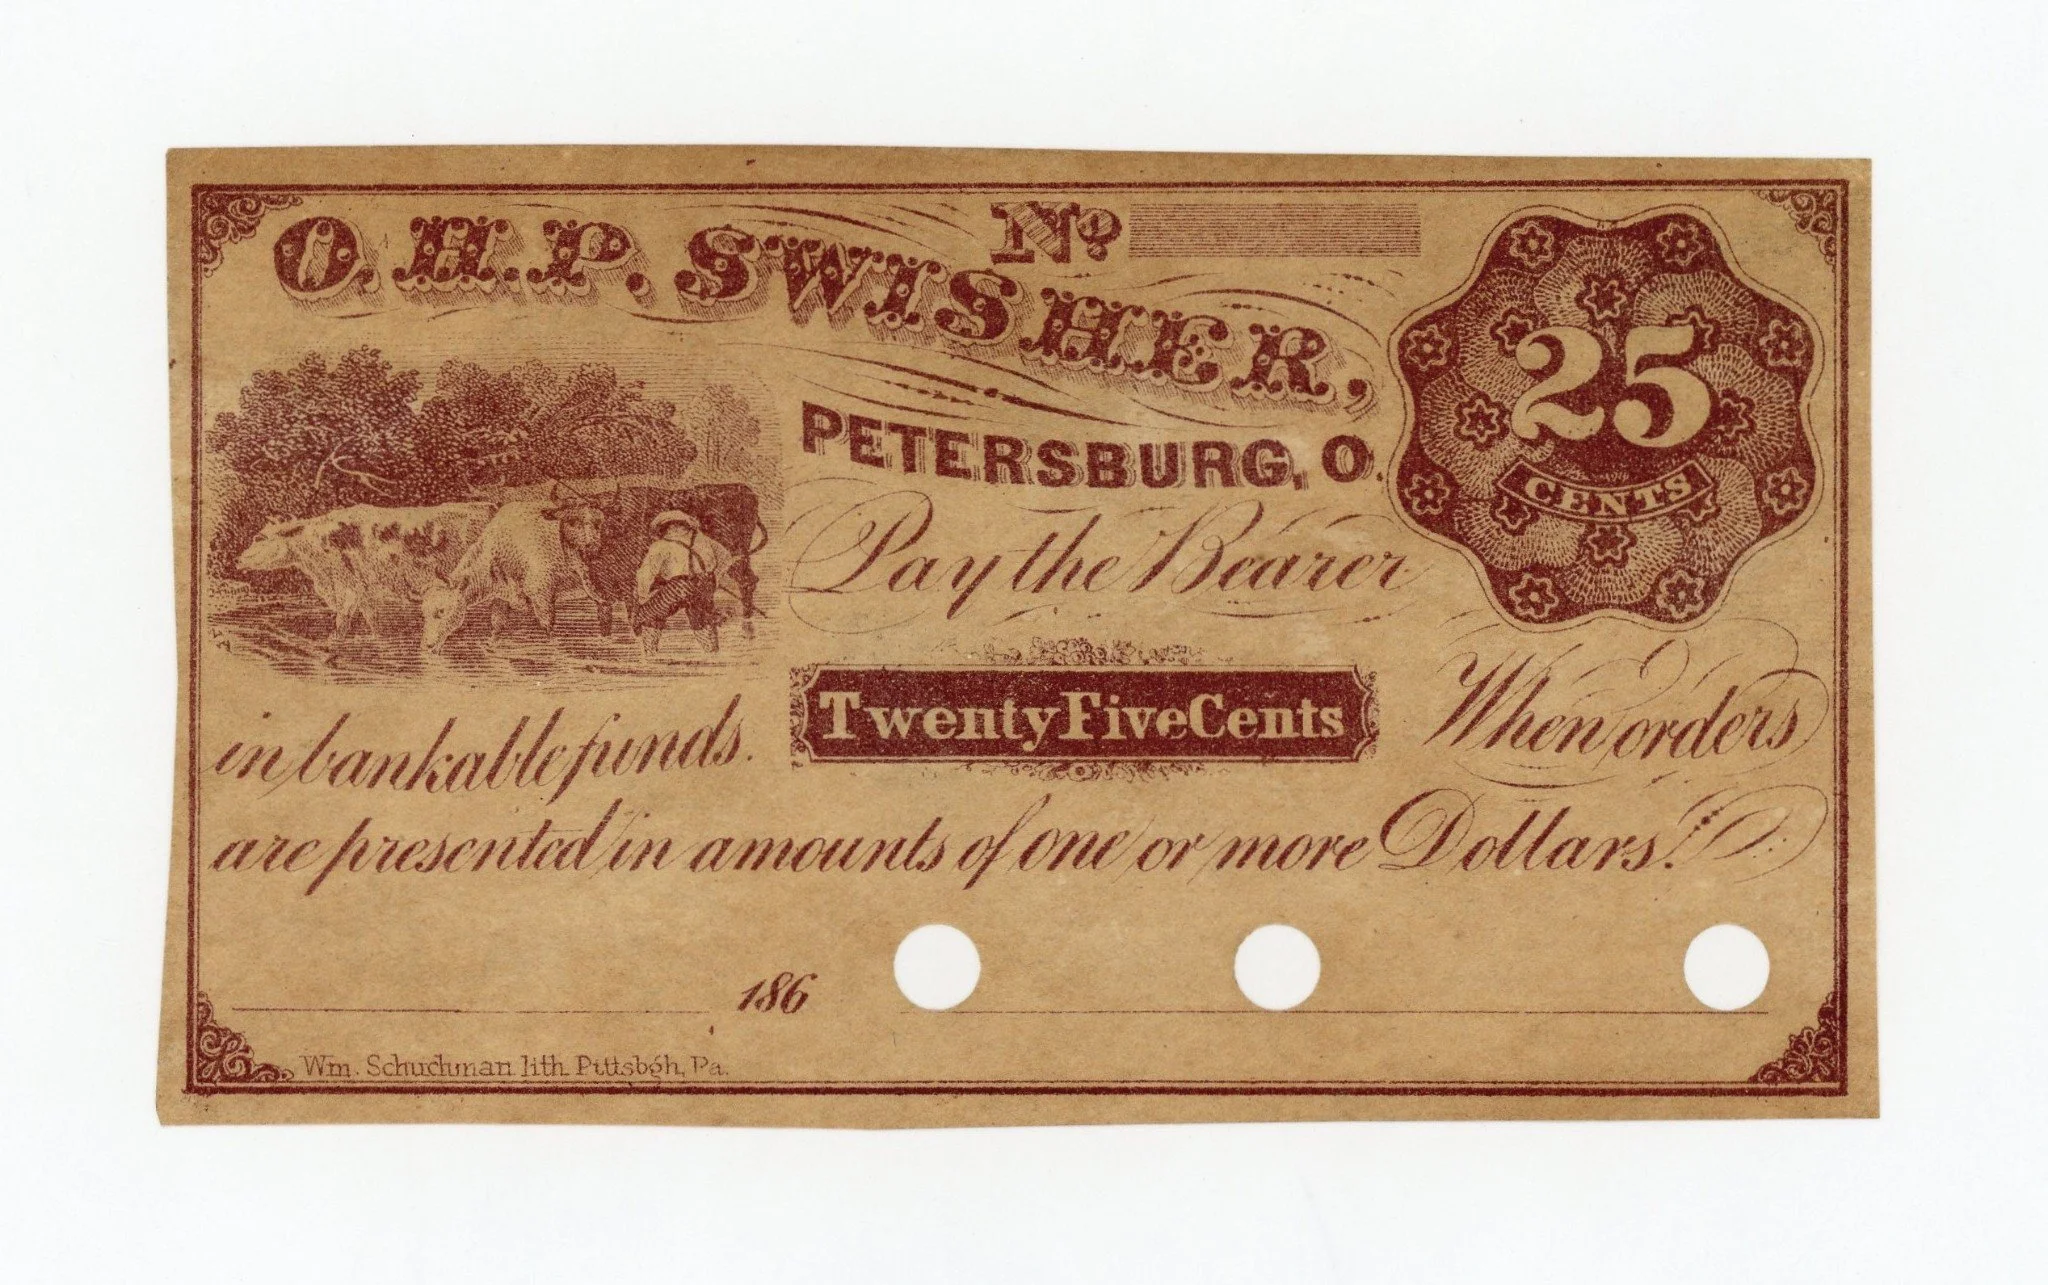 O.H.P. SWISHER,
No.
PETERSBURG, O.
25
CENTS
Pay the Bearer
Twenty Five Cents
When orders
in bankable funds.
are presented in amounts of one or more Dollars.
186
Wm. Schuchman lith. Pittsbgh, Pa.